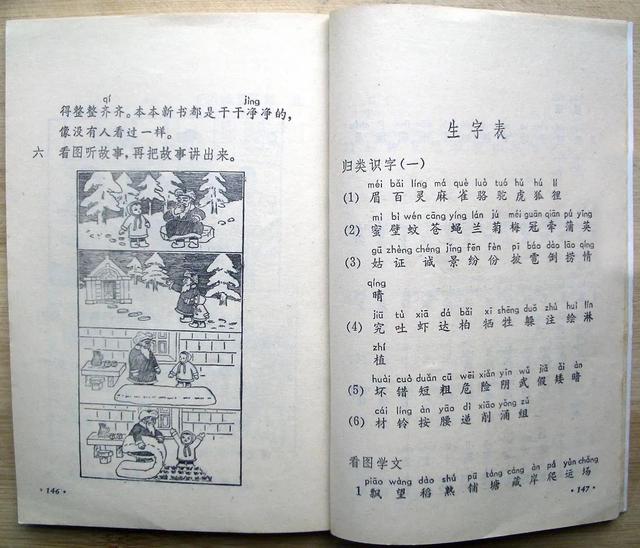 qí jìng
得整整齐齐。本本新书都是干干净净的，
像没有人看过一样。
六 看图听故事，再把故事讲出来。
·146·
生字表
归类识字（一）
méi bǎi líng má què luò tuó hǔ hú lí
(1) 眉 百 灵 麻 雀 骆 驼 虎 狐 狸
mì bì wén cāng yíng lán jú méi guān qiān pú yīng
(2) 蜜 壁 蚊 苍 蝇 兰 菊 梅 冠 牵 蒲 英
gū zhèng chéng jǐng fēn fèn pī bào dào lāo qíng
(3) 姑 证 诚 景 纷 份 披 雹 倒 捞 情
qíng
晴
jiū tǔ xiā dá bǎi xī shēng duǒ zhù huì lín
(4) 究 吐 虾 达 柏 牺 牲 躲 注 绘 淋
zhí
植
huài cuò duǎn cū wēi xiǎn yīn wǔ jiǎ ǎi àn
(5) 坏 错 短 粗 危 险 阴 武 假 矮 暗
cái líng àn yāo dì xiāo yǒng zǔ
(6) 材 铃 按 腰 递 削 涌 组
看图学文
piāo wàng dào shú pū táng cáng àn pá yùn chǎng
1 飘 望 稻 熟 铺 塘 藏 岸 爬 运 场
·147·